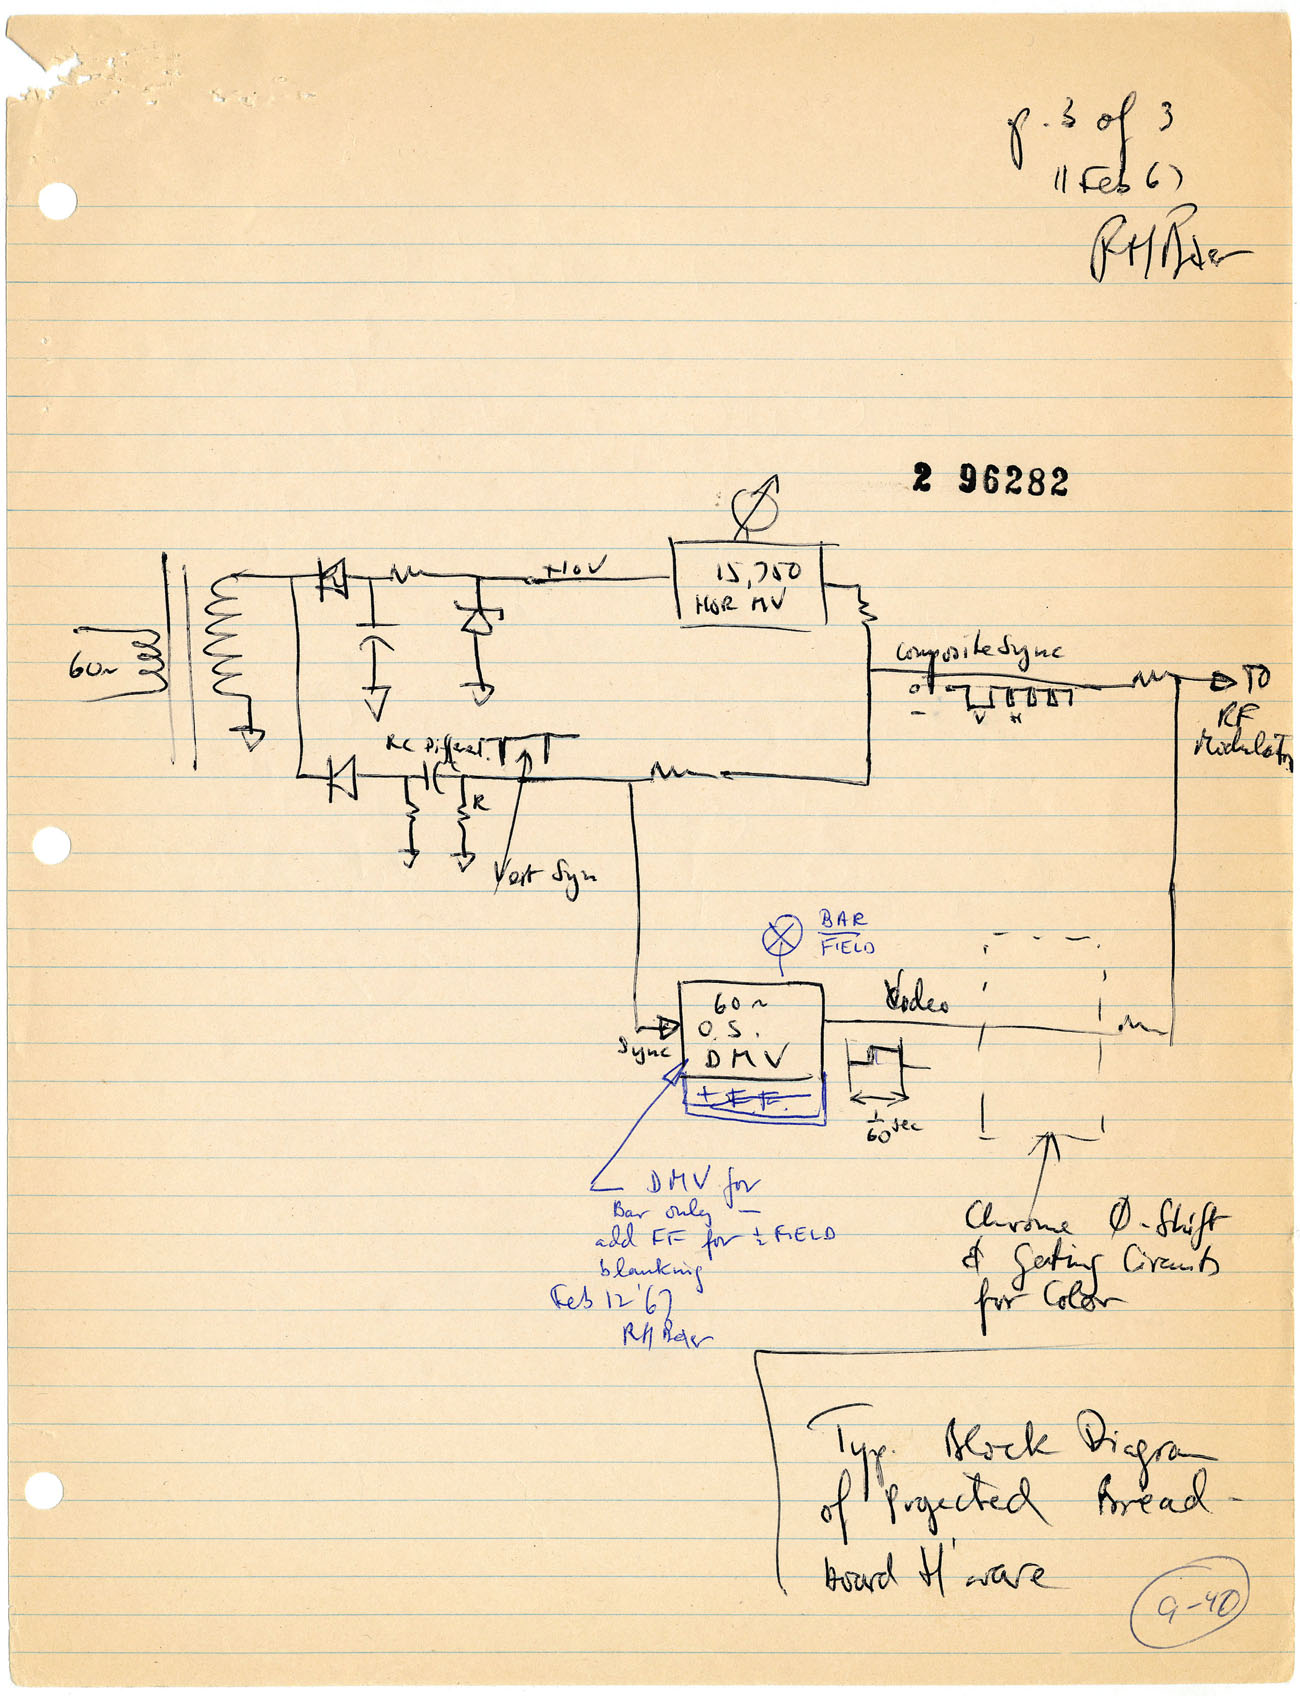 p. 3 of 3
11 Feb 67
RH Baer
2 96282
+10V
15,750
HOR MV
60~
Composite Sync
0
–
V
H
TO
RF
Modulator
RC Different.
R
Vert Syn
BAR
FIELD
60~
O.S.
DMV
+ F.F.
Sync
Video
1/60 sec
DMV for
Bar only –
add FF for ½ FIELD
blanking
Feb 12 '67
RH Baer
Chrome Ø-Shift
& Gating Circuits
for Color
Typ. Block Diagram
of Projected Bread-
board H'ware
9-40